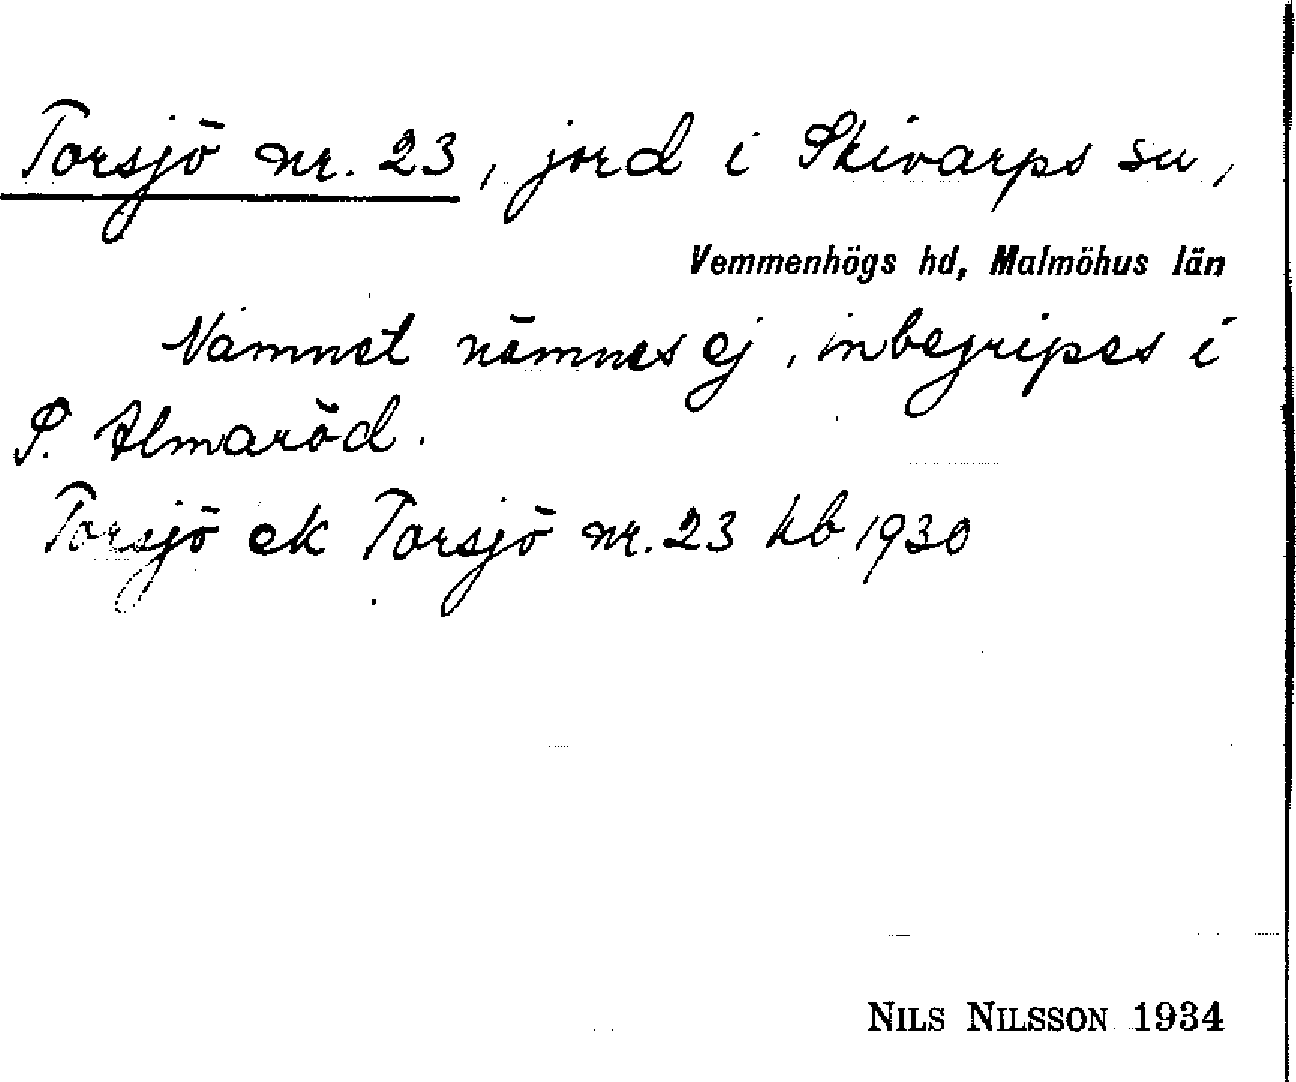 Torsjö nr. 23, jord i Skivarps sn,
Vemmenhögs hd, Malmöhus län
Namnet nämnes ej, inbegripes i
S. Almaröd.
Torsjö ek Torsjö nr. 23 kb 1930
NILS NILSSON 1934